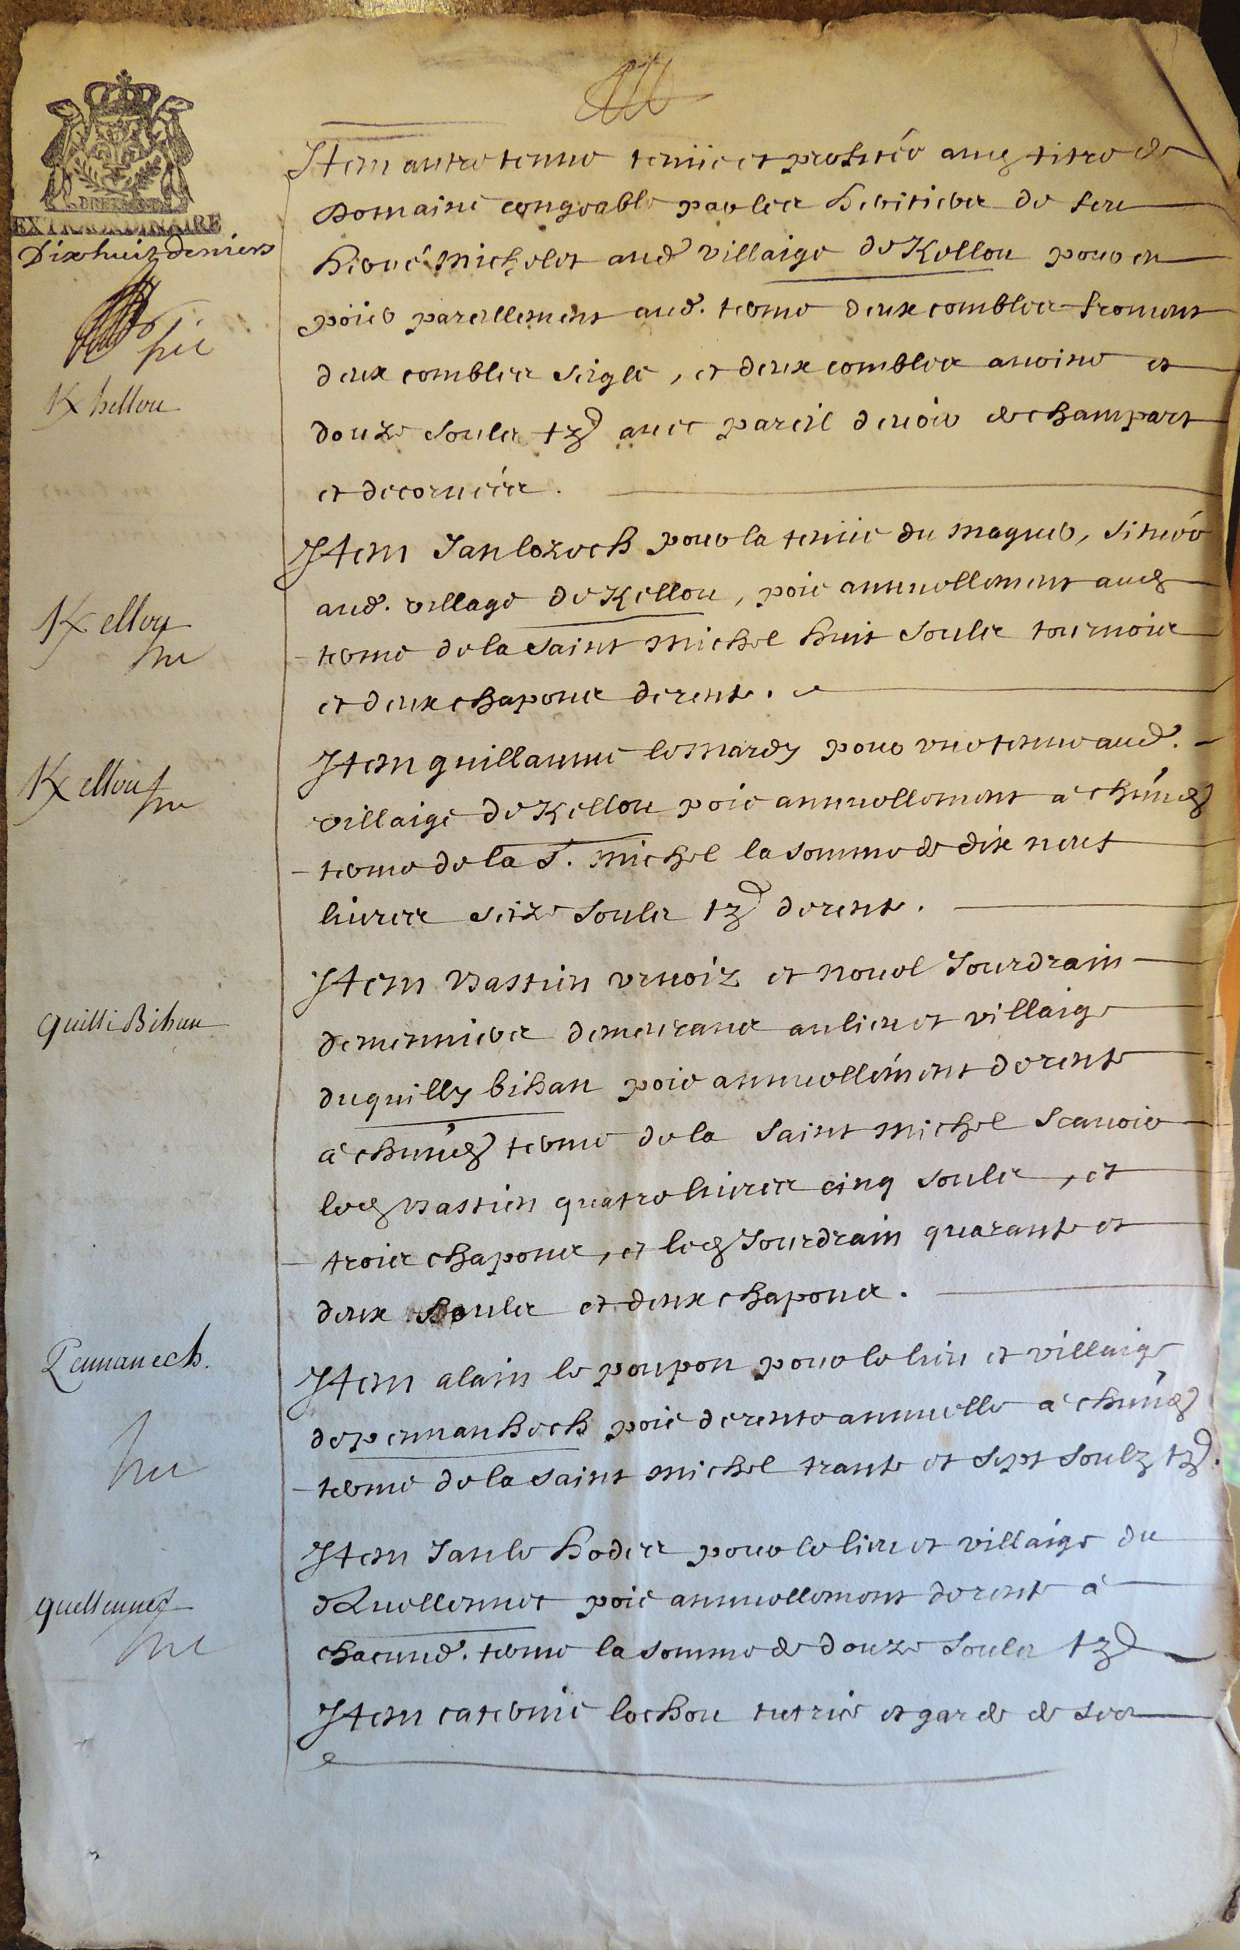 EXTRAORDINAIRE
Dixhuit deniers
Item autre tenue teniie et profitée aud. titre de
Domaine congeable par les heritiers de feu
hervé Michelet aud. villaige de Kellou pour en
poier pareillement aud. terme deux combles froment
deux combles seigle, et deux combles avoine et
douze soulz tz avec pareil devoir de champart
et de corveés.
K hellou
Item Jan lozoch pour la teniie du maguer, situéé
aud. village de Kellou, poie annuellement aud.
terme de la Saint Michel huit soulz tournois
et deux chapons de rente.
Kellou
Item guillaume le mardy pour une tenue aud.
villaige de Kellou poie annuellement a chūned.
terme de la S. Michel la somme de dix neuf
livres seize soulz tz de rente.
Kellou
Item Bastien et Nouel Jourdrain
demeurans au lieu et villaige
du quilly bihan poie annuellement de rente
a chūned. terme de la Saint Michel scavoir
led. Bastien quatre livres cinq soulz, et
trois chapons, et led. Jourdrain quarante et
deux soulz et deux chapons.
Quilli Bihan
Item alain le poupon pour le lieu et villaige
de pennanhech poie de rente annuelle a chūned.
terme de la Saint Michel trante et sept soulz tz.
Pennanech.
Item Jan le hoder pour le lieu et villaige du
Quellennec poie annuellement de rente a
chacund. terme la somme de douze soulz tz
quellennec
Item caterine lochou tutrice et garde de ses